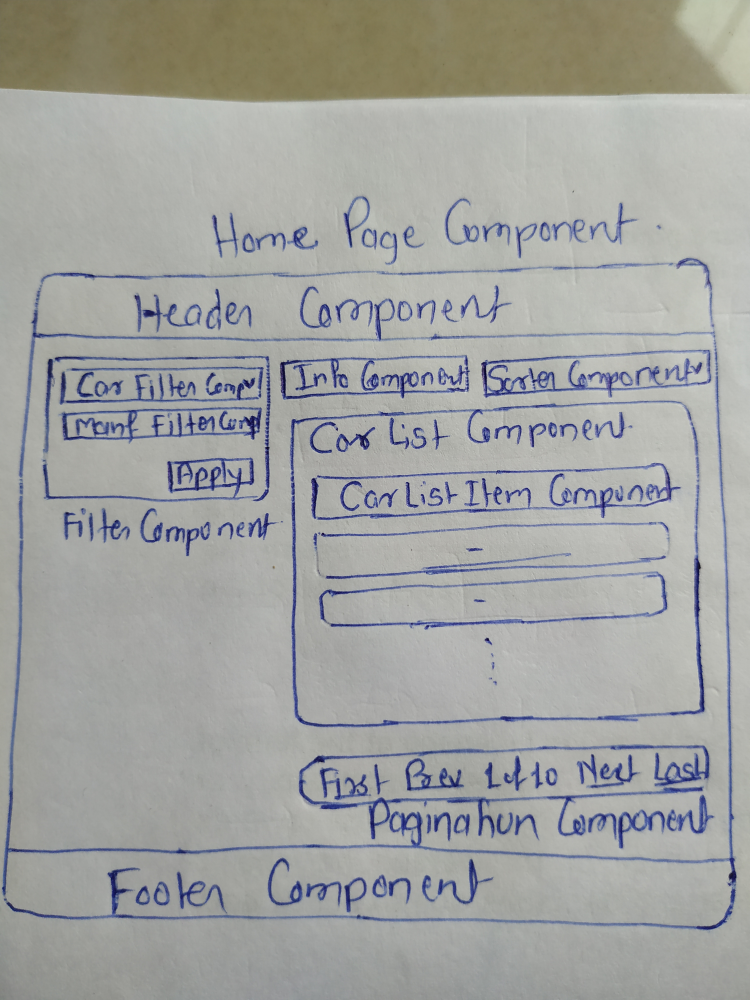 Home Page Component.
Header Component
Car Filter Comp
Manf Filter Comp
Apply
Filter Component
Info Component
Sorter Component
Car List Component
Car List Item Component
-
-
First Prev 1 of 10 Next Last
Pagination Component
Footer Component